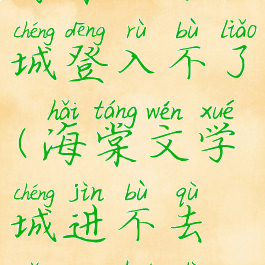 chéng dēng rù bù liǎo
城登入不了
hǎi táng wén xué
（海棠文学
chéng jìn bù qù
城进不去